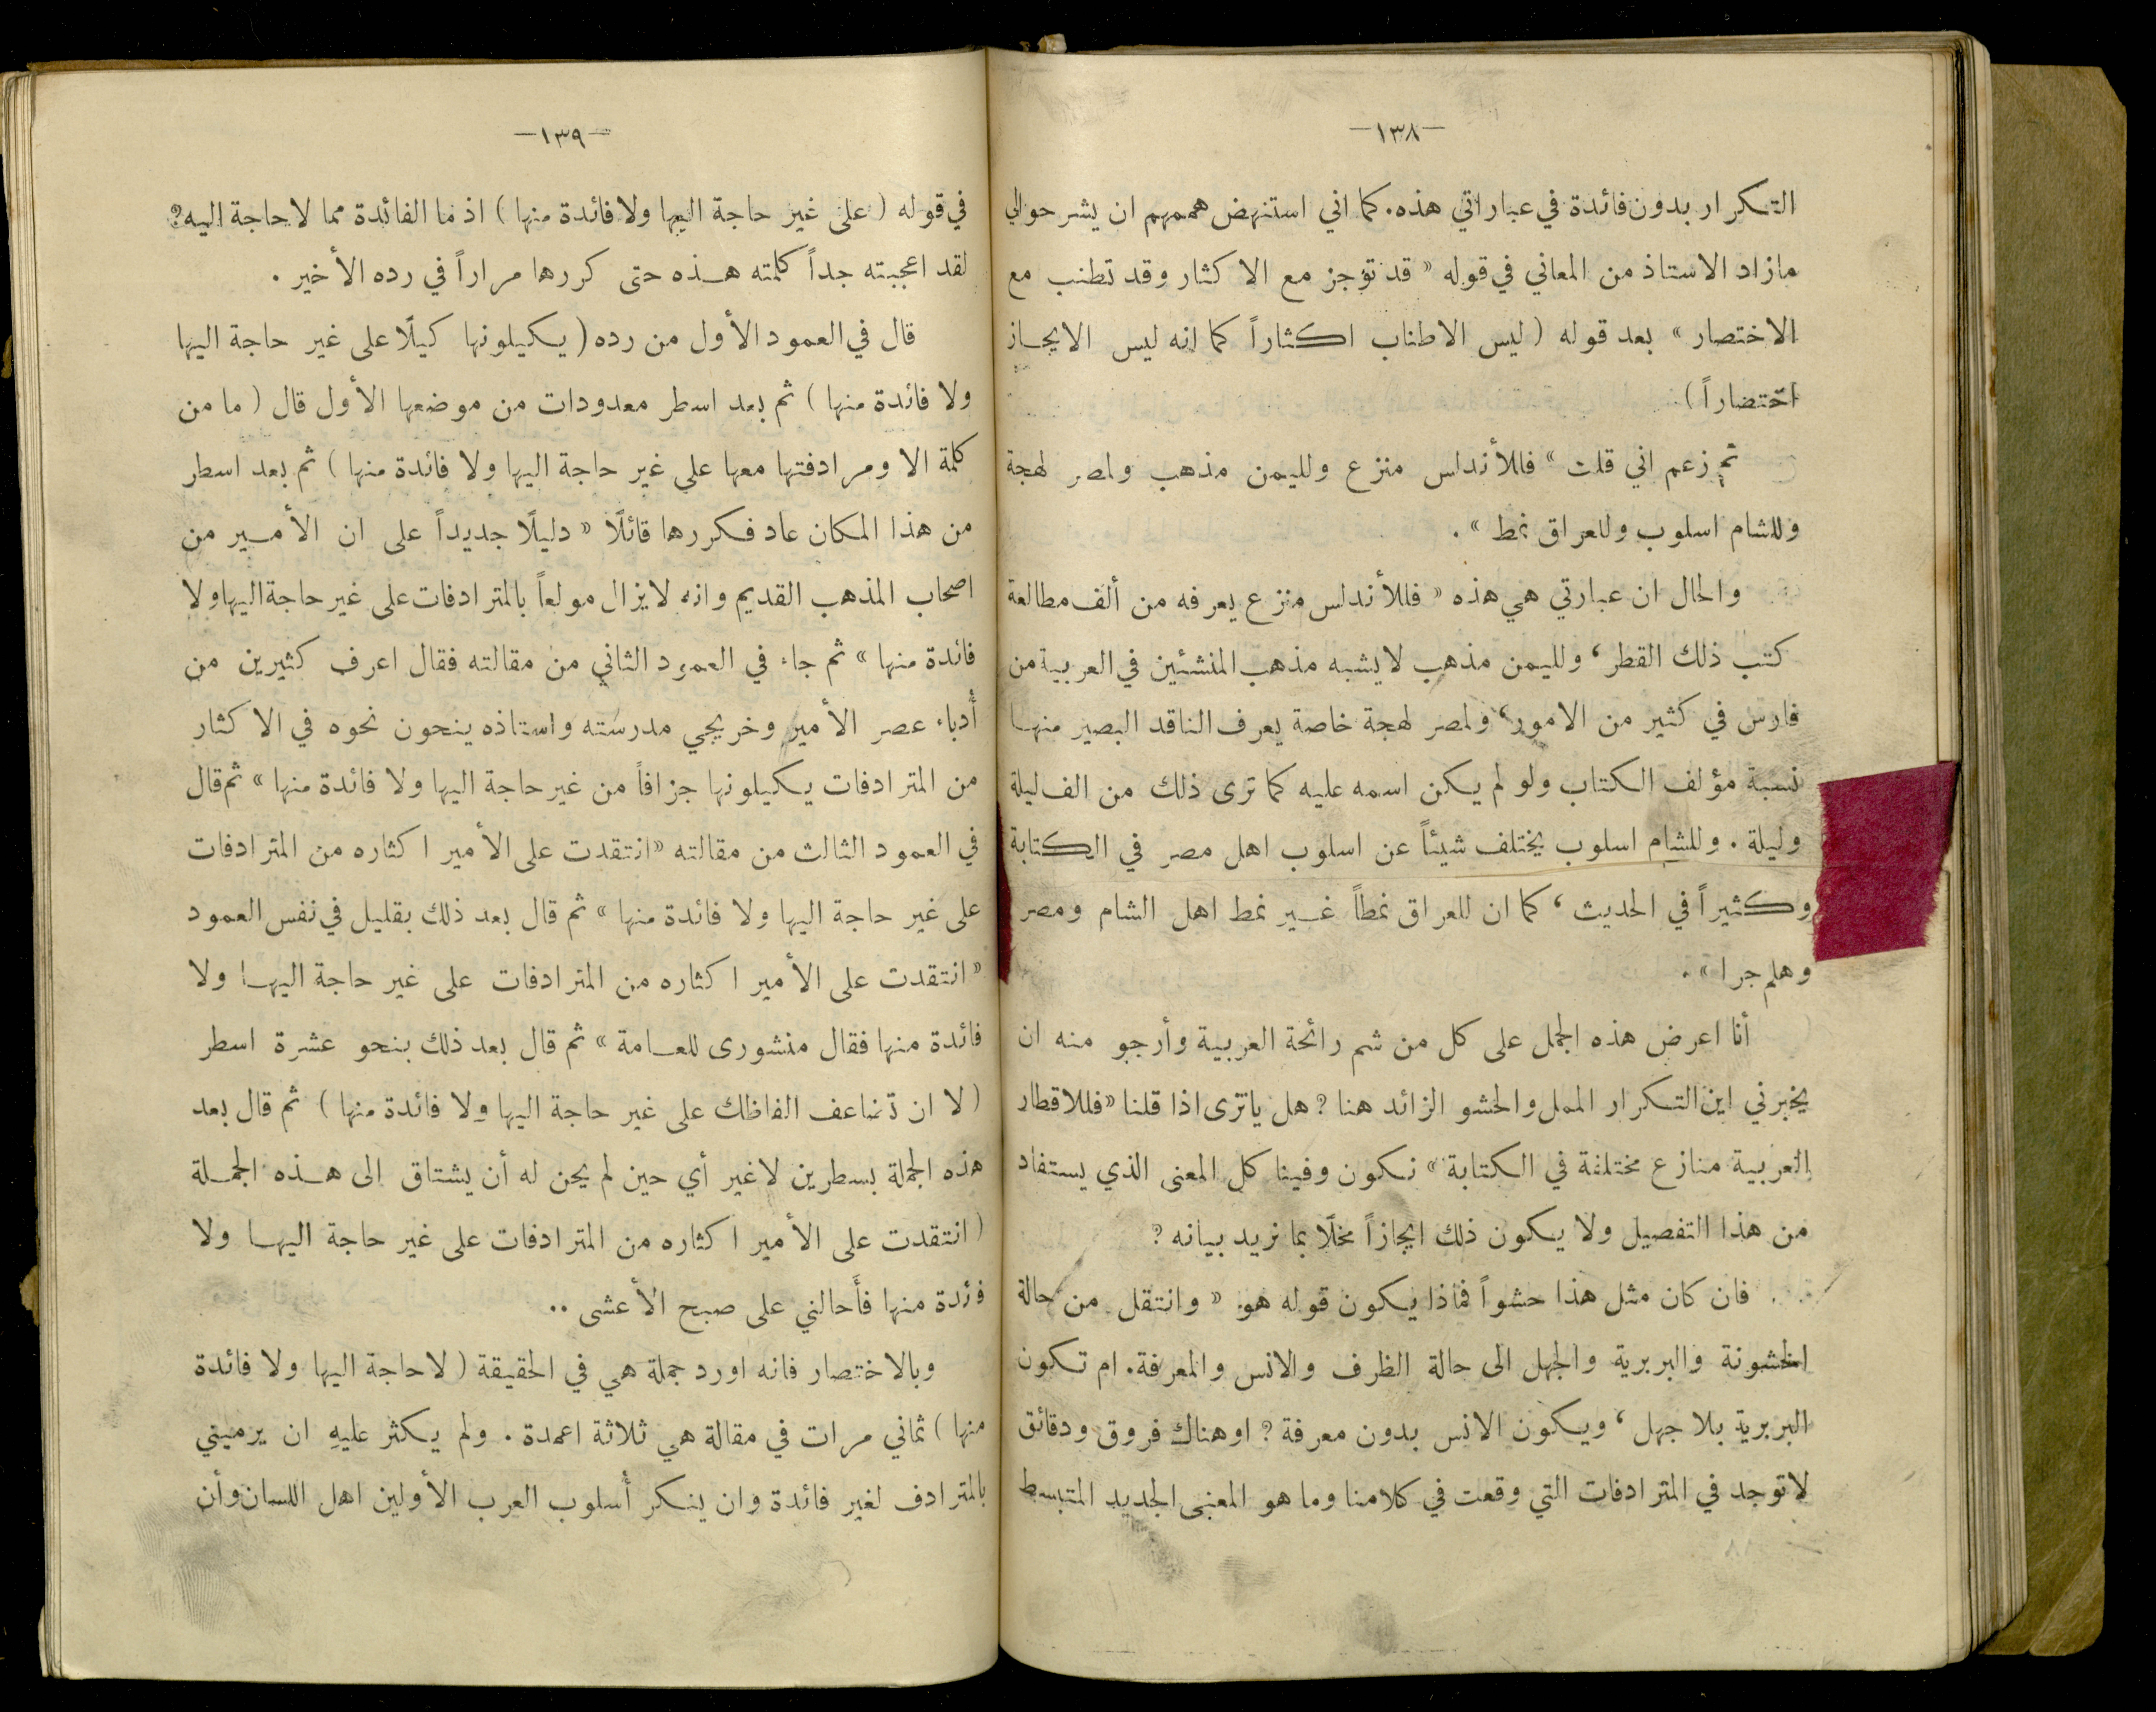 —١٣٨—
التكرار بدون فائدة في عباراتي هذه. كما اني استنهض هممهم ان يشرحوا لي
مازاد الاستاذ من المعاني في قوله « قد توجز مع الاكثار وقد تطنب مع
الاختصار » بعد قوله ( ليس الاطناب اكثاراً كما انه ليس الايجاز
اختصاراً )
ثم زعم اني قلت « فللأندلس منزع ولليمن مذهب ولمصر لهجة
وللشام اسلوب وللعراق نمط » .
والحال ان عبارتي هي هذه « فللأندلس منزع يعرفه من ألف مطالعة
كتب ذلك القطر ، ولليمن مذهب لا يشبه مذهب المنشئين في العربية من
فارس في كثير من الامور ، ولمصر لهجة خاصة يعرف الناقد البصير منها
نسبة مؤلف الكتاب ولو لم يكن اسمه عليه كما ترى ذلك من الف ليلة
وليلة . وللشام اسلوب يختلف شيئاً عن اسلوب اهل مصر في الكتابة
وكثيراً في الحديث ، كما ان للعراق نمطاً غير نمط اهل الشام ومصر
وهلم جرا » .
أنا اعرض هذه الجمل على كل من شم رائحة العربية وأرجو منه ان
يخبرني اين التكرار الممل والحشو الزائد هنا ? هل ياترى اذا قلنا « فللاقطار
العربية منازع مختلفة في الكتابة » نكون وفينا كل المعنى الذي يستفاد
من هذا التفصيل ولا يكون ذلك ايجازاً مخلًا بما نريد بيانه ?
فان كان مثل هذا حشواً فماذا يكون قوله هو « وانتقل من حالة
الخشونة والبربرية والجهل الى حالة الظرف والانس والمعرفة. ام تكون
البربرية بلا جهل ، ويكون الانس بدون معرفة ? او هناك فروق ودقائق
لا توجد في المترادفات التي وقعت في كلامنا وما هو المعنى الجديد المتبسط
—١٣٩—
في قوله ( على غير حاجة اليها ولا فائدة منها ) اذ ما الفائدة مما لا حاجة اليه?
لقد اعجبته جداً كلمته هذه حتى كررها مراراً في رده الأخير .
قال في العمود الأول من رده ( يكيلونها كيلًا على غير حاجة اليها
ولا فائدة منها ) ثم بعد اسطر معدودات من موضعها الأول قال ( ما من
كلمة الا ومرادفتها معها على غير حاجة اليها ولا فائدة منها ) ثم بعد اسطر
من هذا المكان عاد فكررها قائلًا « دليلًا جديداً على ان الأمير من
اصحاب المذهب القديم وانه لا يزال مولعاً بالمترادفات على غير حاجة اليها ولا
فائدة منها » ثم جاء في العمود الثاني من مقالته فقال اعرف كثيرين من
أدباء عصر الأمير وخريجي مدرسته واستاذه ينحون نحوه في الاكثار
من المترادفات يكيلونها جزافاً من غير حاجة اليها ولا فائدة منها » ثم قال
في العمود الثالث من مقالته « انتقدت على الأمير اكثاره من المترادفات
على غير حاجة اليها ولا فائدة منها » ثم قال بعد ذلك بقليل في نفس العمود
« انتقدت على الأمير اكثاره من المترادفات على غير حاجة اليها ولا
فائدة منها فقال منشورى للعامة » ثم قال بعد ذلك بنحو عشرة اسطر
( لا ان تضاعف الفاظك على غير حاجة اليها ولا فائدة منها ) ثم قال بعد
هذه الجملة بسطرين لا غير أي حين لم يحن له أن يشتاق إلى هذه الجملة
( انتقدت على الأمير اكثاره من المترادفات على غير حاجة اليها ولا
فائدة منها فأحالني على صبح الأعشى ..
وبالاختصار فانه اورد جملة هي في الحقيقة ( لا حاجة اليها ولا فائدة
منها ) ثماني مرات في مقالة هي ثلاثة اعمدة . ولم يكثر عليهِ ان يرميني
بالمترادف لغير فائدة وان ينكر أسلوب العرب الأولين اهل اللسان وأن